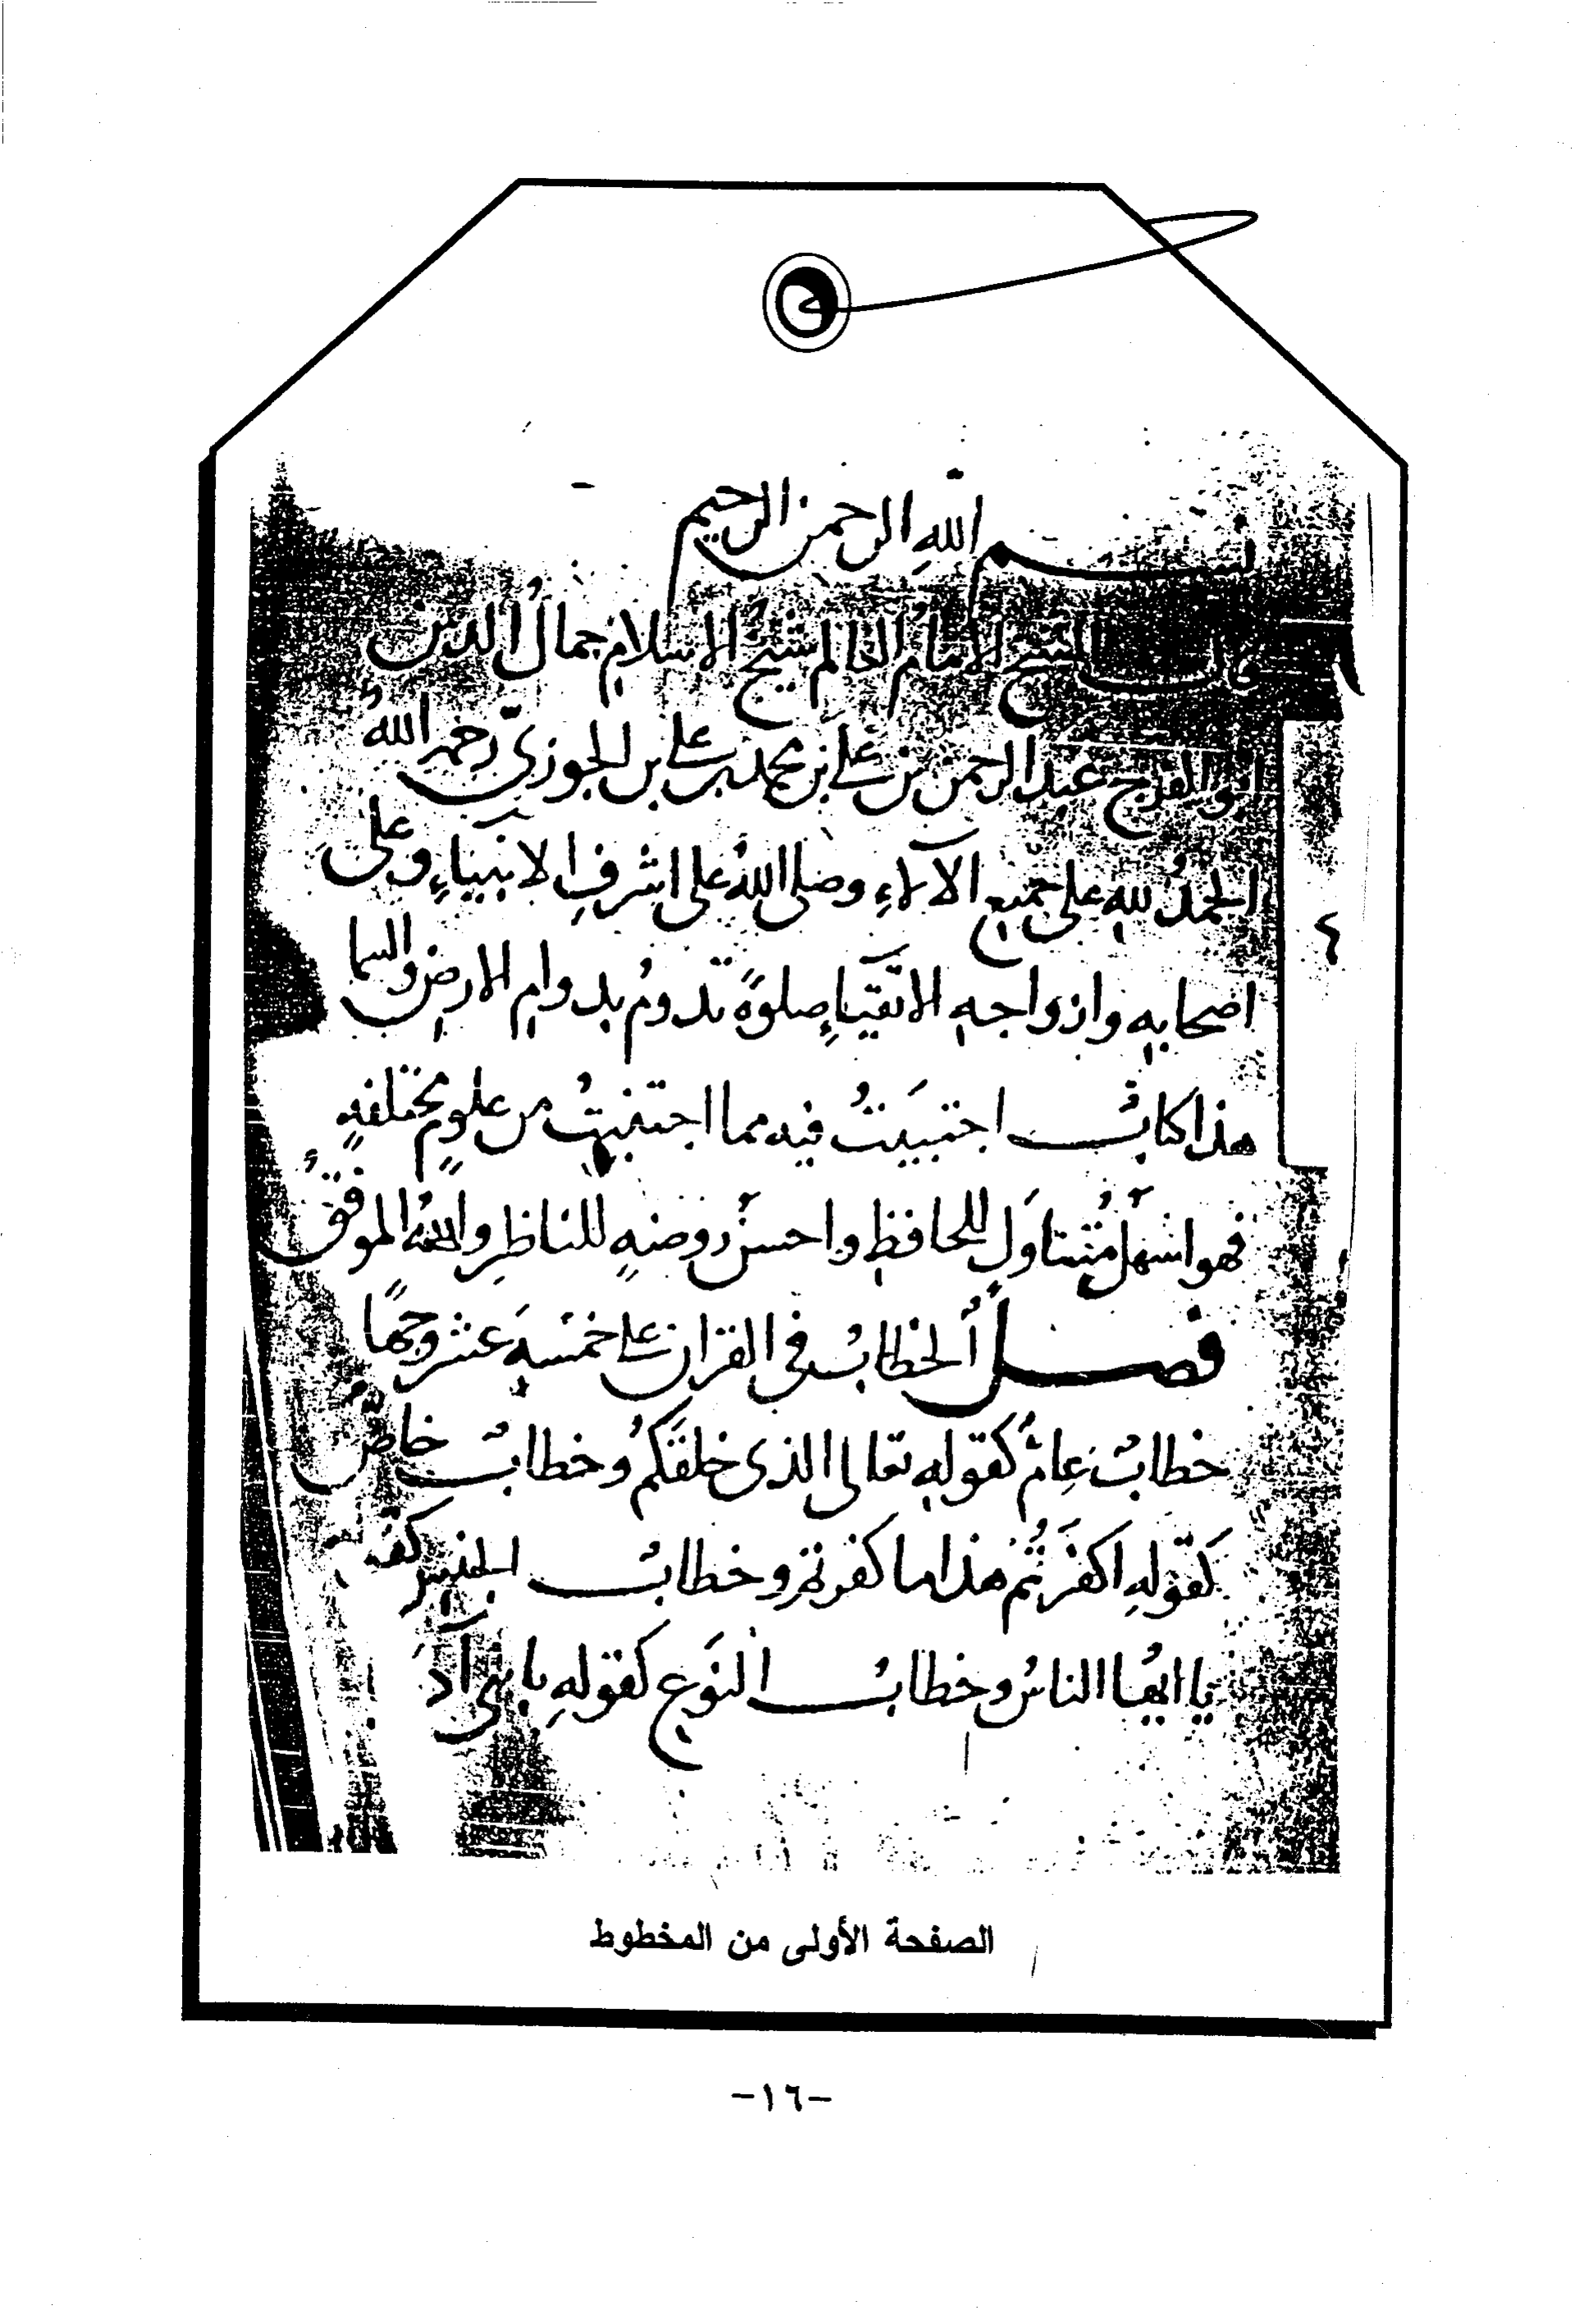 بسم الله الرحمن الرحيم
قال الشيخ الامام العالم شيخ الاسلام جمال الدين
ابو الفرج عبد الرحمن بن علي بن محمد بن علي بن الجوزيّ رحمه اللهُ
الحمدُ للهِ على جميع الآلاءِ وصلى اللهُ على اشرفِ الانبياءِ وعلى
اصحابِهِ وازواجهِ الاتقياءِ صلوةً تدومُ بدوامِ الارضِ والسما
هذا كتابٌ اجتبيتُ فيه مما اجتنيتُ من علومٍ مختلفةٍ
فهو اسْهلُ مُتناوَلٍ للحافظِ واحسنُ روضةٍ للناظرِ واللهُ الموفقُ
فصل الخطابُ في القران على خمسةَ عشر وجهًا
خطابٌ عامٌّ كقولِهِ تعالى الذى خلقَكُم وخطابٌ خاصٌّ
كقولِهِ اكفَرْتُم هذا ما كفرتم وخطابُ الجنسِ كقو
يا ايُّها الناسُ وخطابُ النَوعِ كقولِهِ يا بني آدَ
٤
الصفحة الأولى من المخطوط
-١٦-